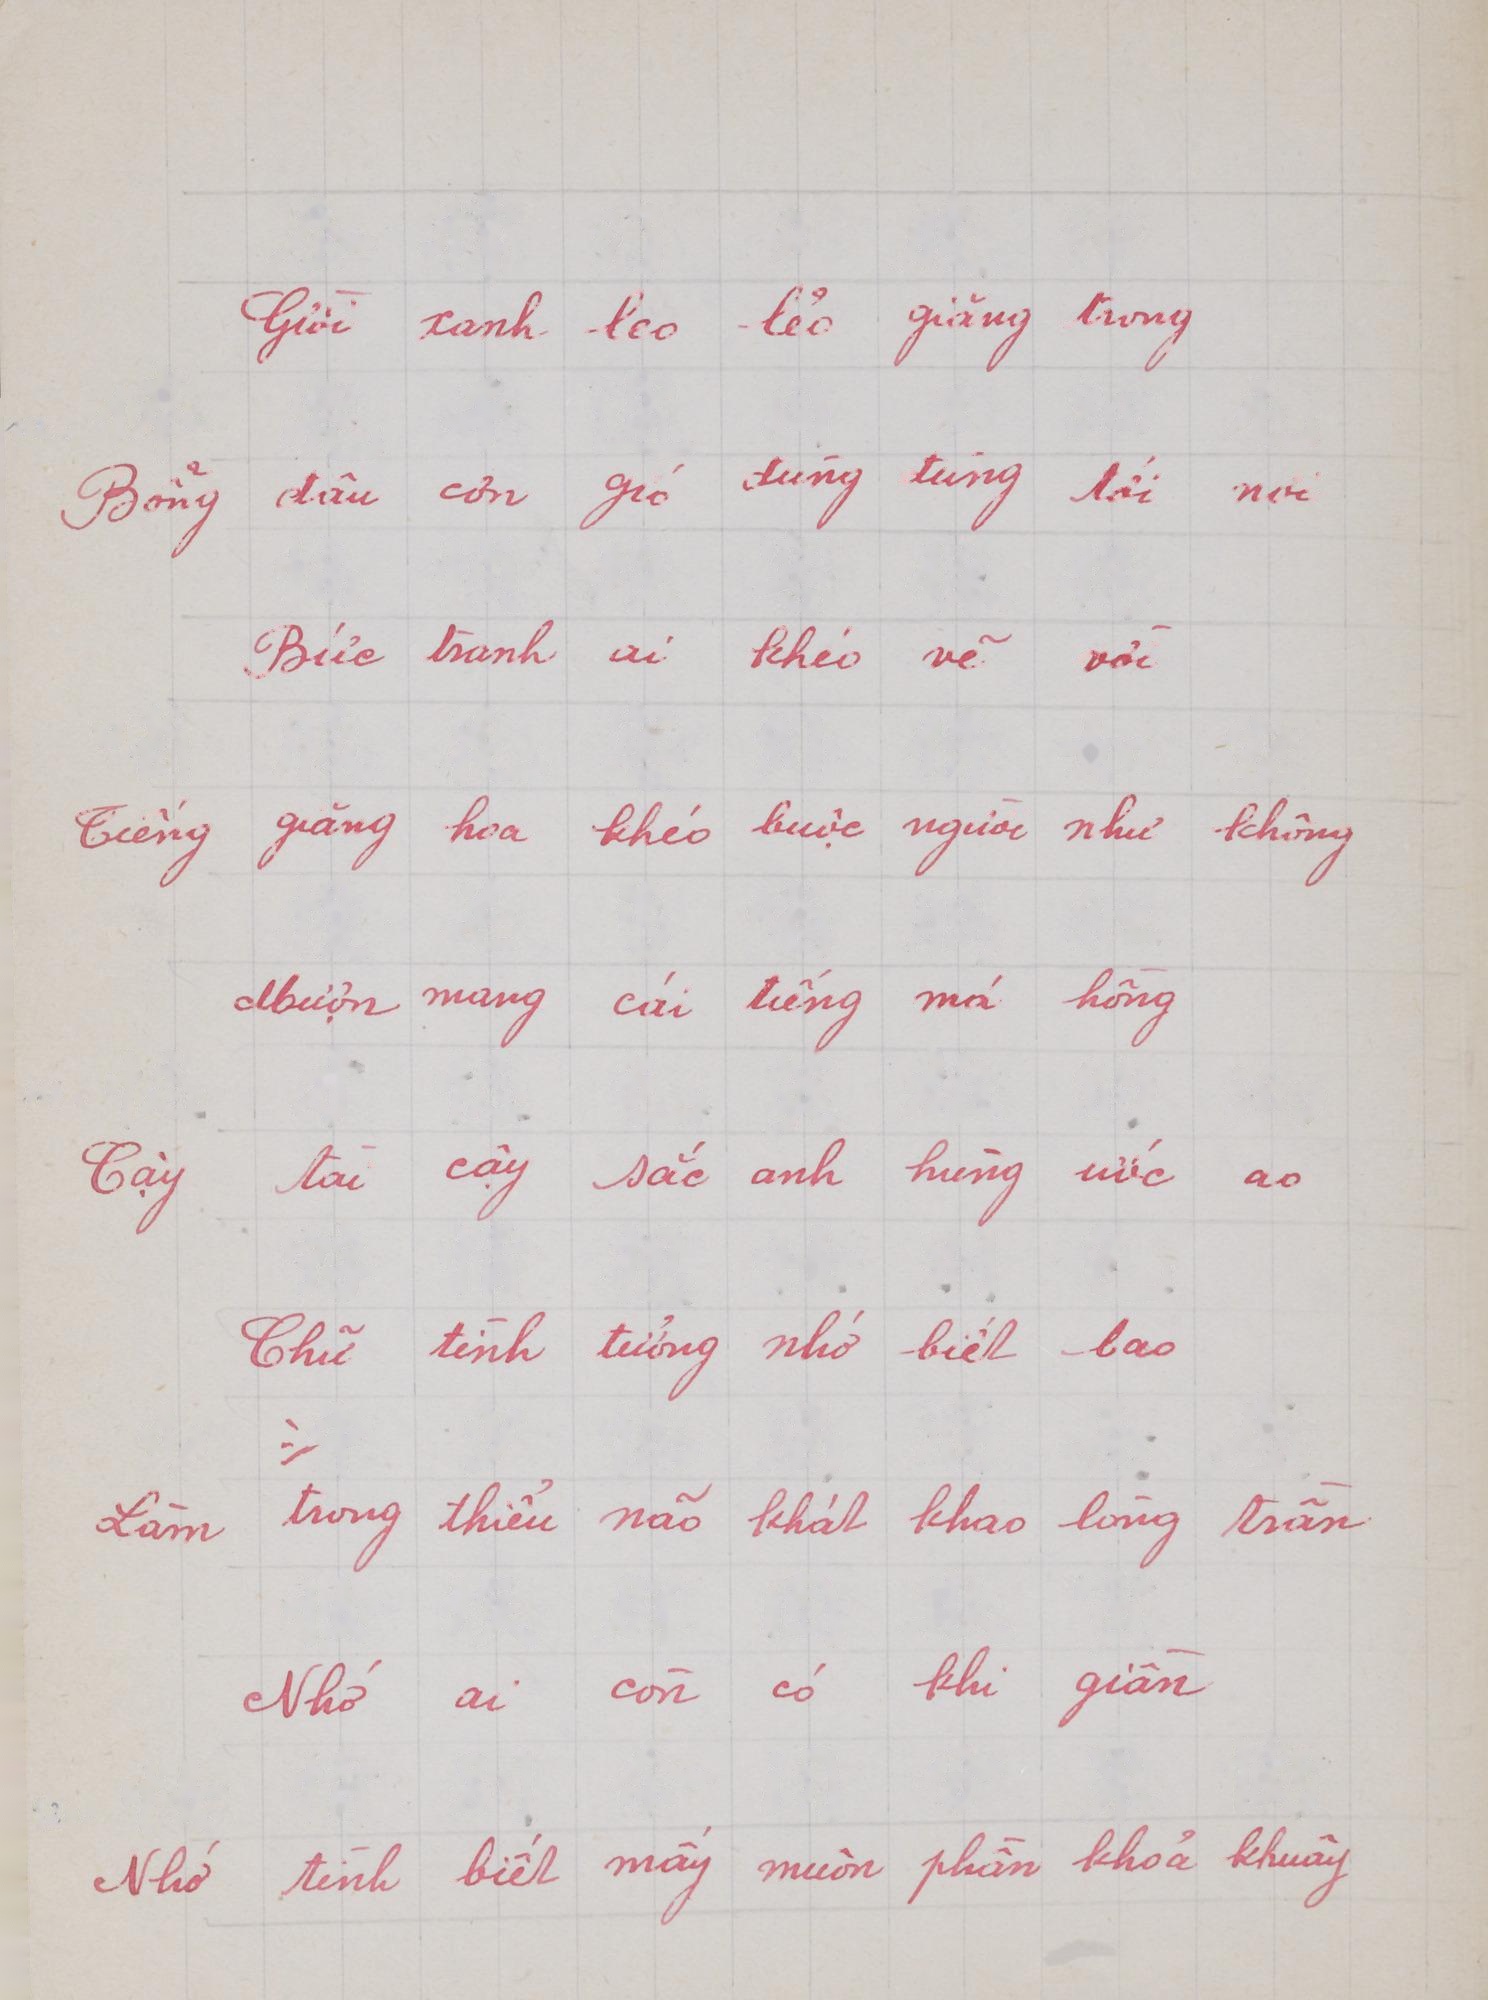 Giời xanh leo lẻo giăng trong
Bổng đâu cơn gió đùng đùng tới nơi
Bức tranh ai khéo vẽ vời
Tiếng giăng hoa khéo buộc người như không
Mượn mang cái tiếng má hồng
Cậy tài cậy sắc anh hùng ước ao
Chữ tình tưởng nhớ biết bao
Lầm trong thiểu não khát khao lòng trần
Nhớ ai còn có khi giần
Nhớ tình biết mấy muôn phần khoả khuây